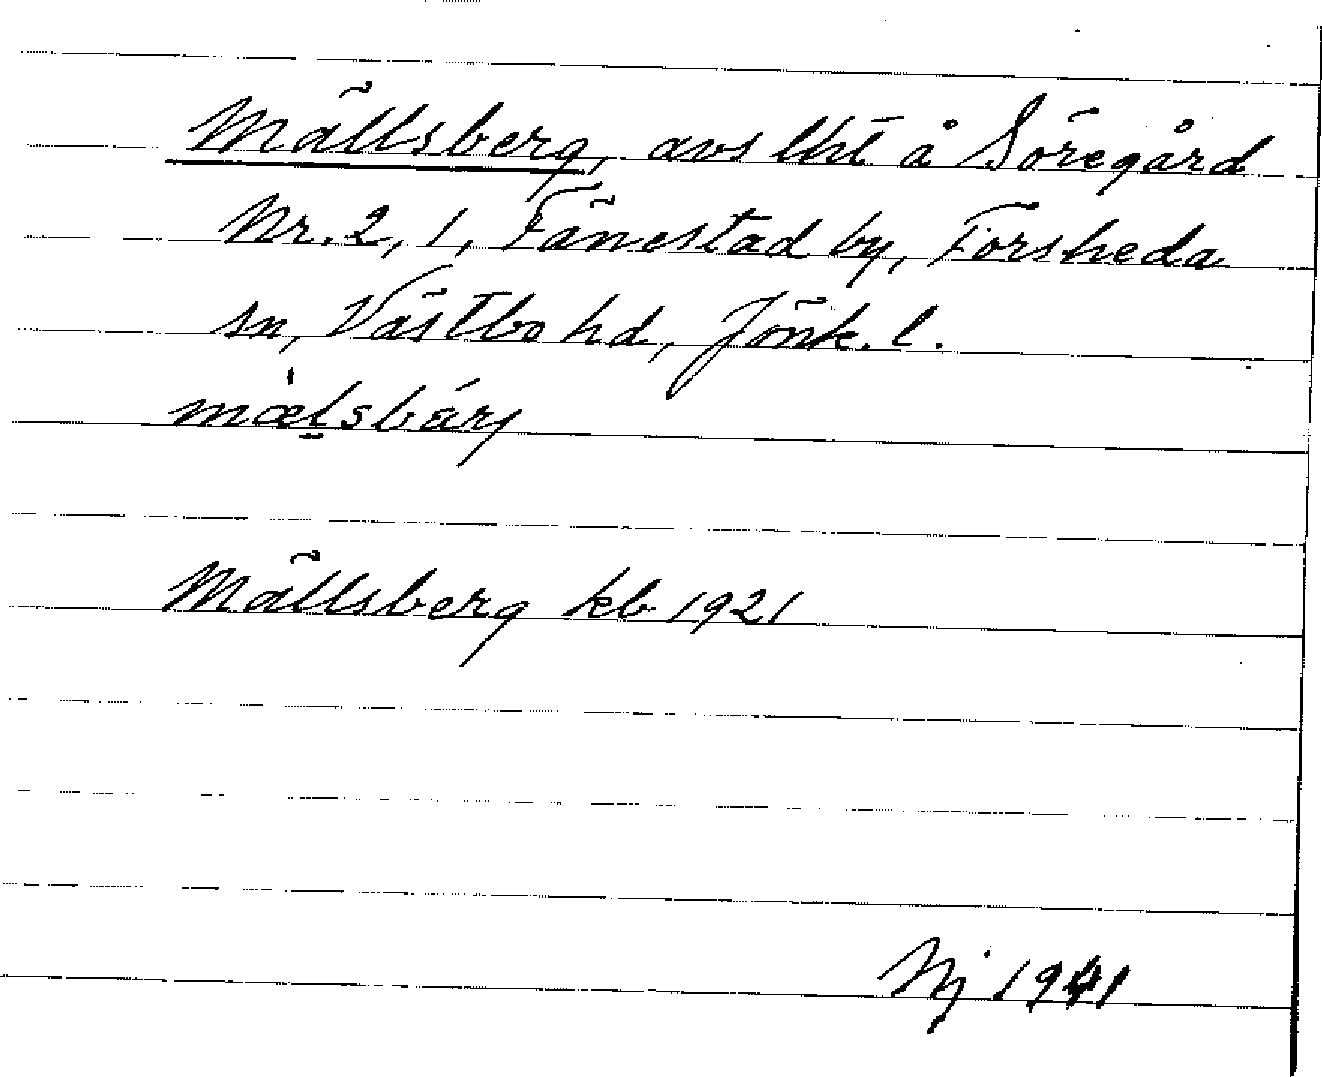 Mällsberg, avs lht å Söregård
Nr. 2, 1, Fänestad by, Forsheda
sn, Västbo hd, Jönk. l.
mæ̀lsbárj
Mällsberg kb 1921
Nj 1941